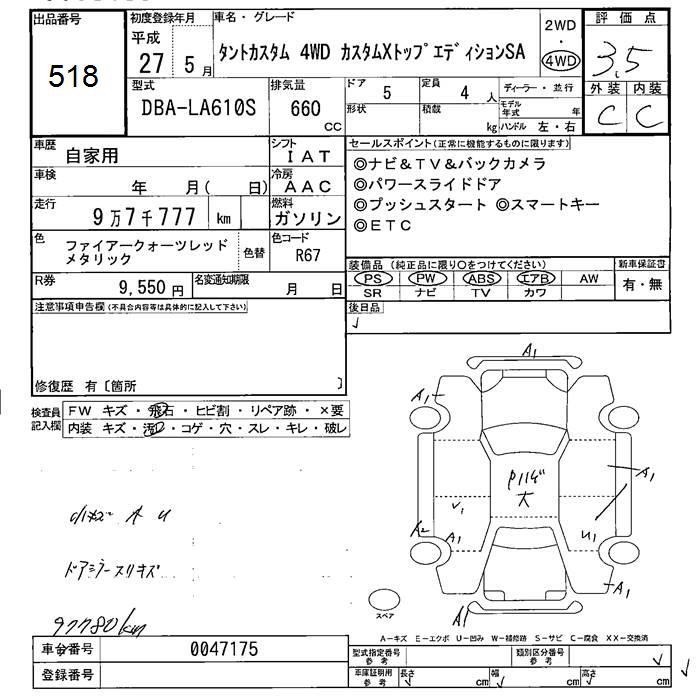 出品番号
518
初度登録年月
平成
27 5 月
車名・グレード
タントカスタム 4WD カスタムXトップエディションSA
2WD
・
4WD
評価点
3.5
外装 内装
C C
型式
DBA-LA610S
排気量
660
CC
ドア 5
定員 4 人
ディーラー・並行
形状
積載 kg
モデル年式 年
ハンドル 左・右
車歴 自家用
シフト IAT
車検 年 月( 日)
冷房 AAC
走行 9万7千777 km
燃料 ガソリン
色 ファイアークォーツレッド
メタリック
色替
色コード R67
R券 9,550 円
名変通知期限 月 日
セールスポイント(正常に機能するものに限ります)
◎ナビ&TV&バックカメラ
◎パワースライドドア
◎プッシュスタート ◎スマートキー
◎ETC
装備品 (純正品に限り○をつけてください)
PS PW ABS エアB AW
SR ナビ TV カワ
新車保証書
有・無
後日品
注意事項申告欄(不具合内容等は具体的に記入して下さい)
修復歴 有〔箇所 〕
検査員
記入欄
FW キズ・飛石・ヒビ割・リペア跡・×要
内装 キズ・汚レ・コゲ・穴・スレ・キレ・破レ
A U
ドアミラースリキズ
97780km
A1
A1
大
A1
U1
A2
A1
U1
A1
A1
スペア
A-キズ E-エクボ U-凹み W-補修跡 S-サビ C-腐食 XX-交換済
車台番号 0047175
登録番号
型式指定番号
参考
類別区分番号
参考
車庫証明用
参考
長さ cm
幅 cm
高さ cm